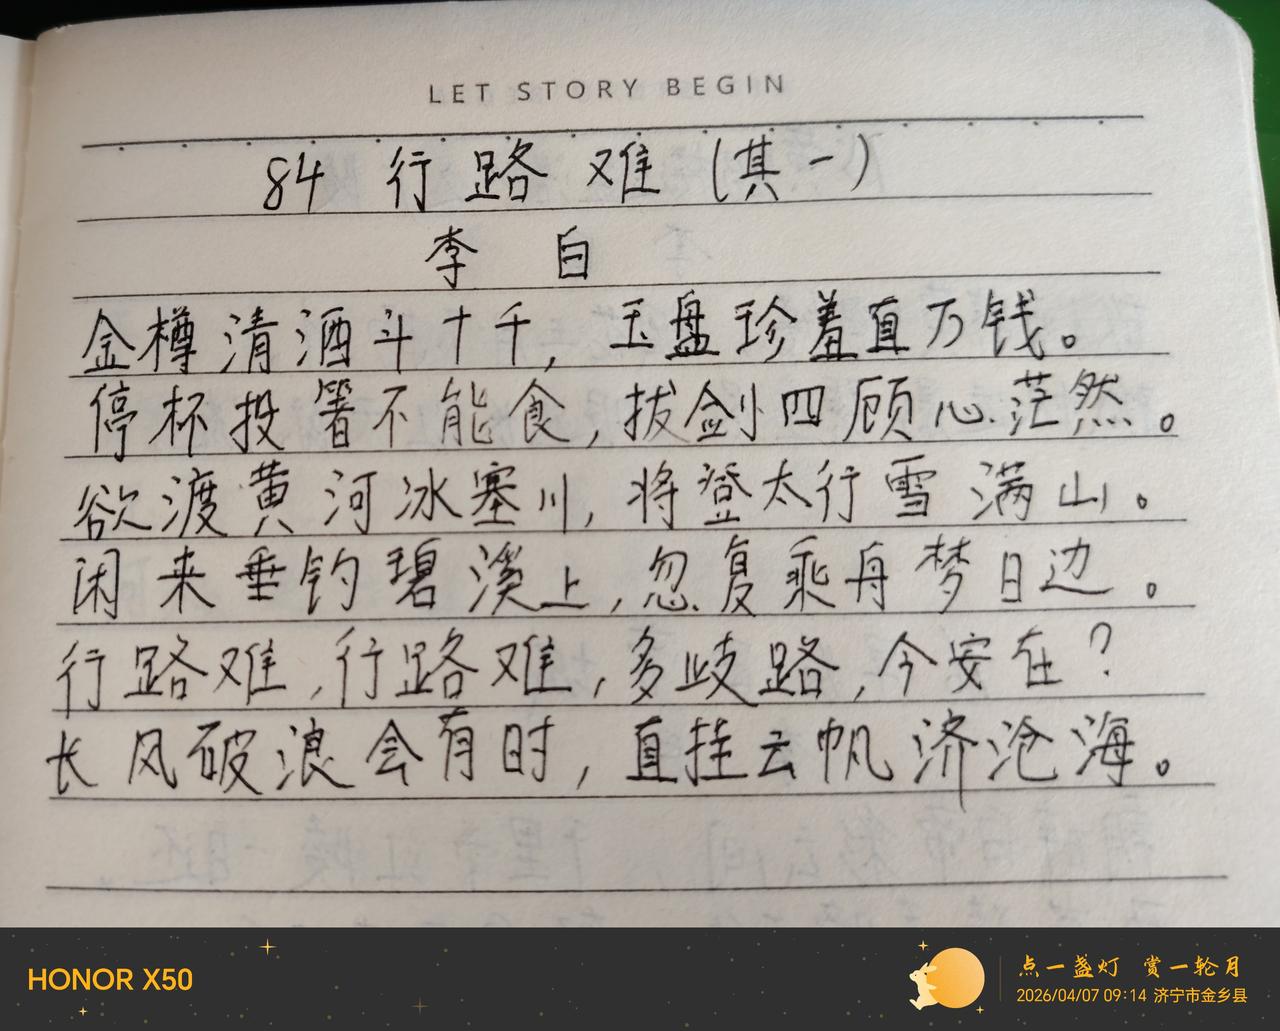 LET STORY BEGIN
84 行路难(其一)
李 白
金樽清酒斗十千，玉盘珍羞直万钱。
停杯投箸不能食，拔剑四顾心茫然。
欲渡黄河冰塞川，将登太行雪满山。
闲来垂钓碧溪上，忽复乘舟梦日边。
行路难，行路难，多歧路，今安在？
长风破浪会有时，直挂云帆济沧海。
HONOR X50
点一盏灯 赏一轮月
2026/04/07 09:14 济宁市金乡县